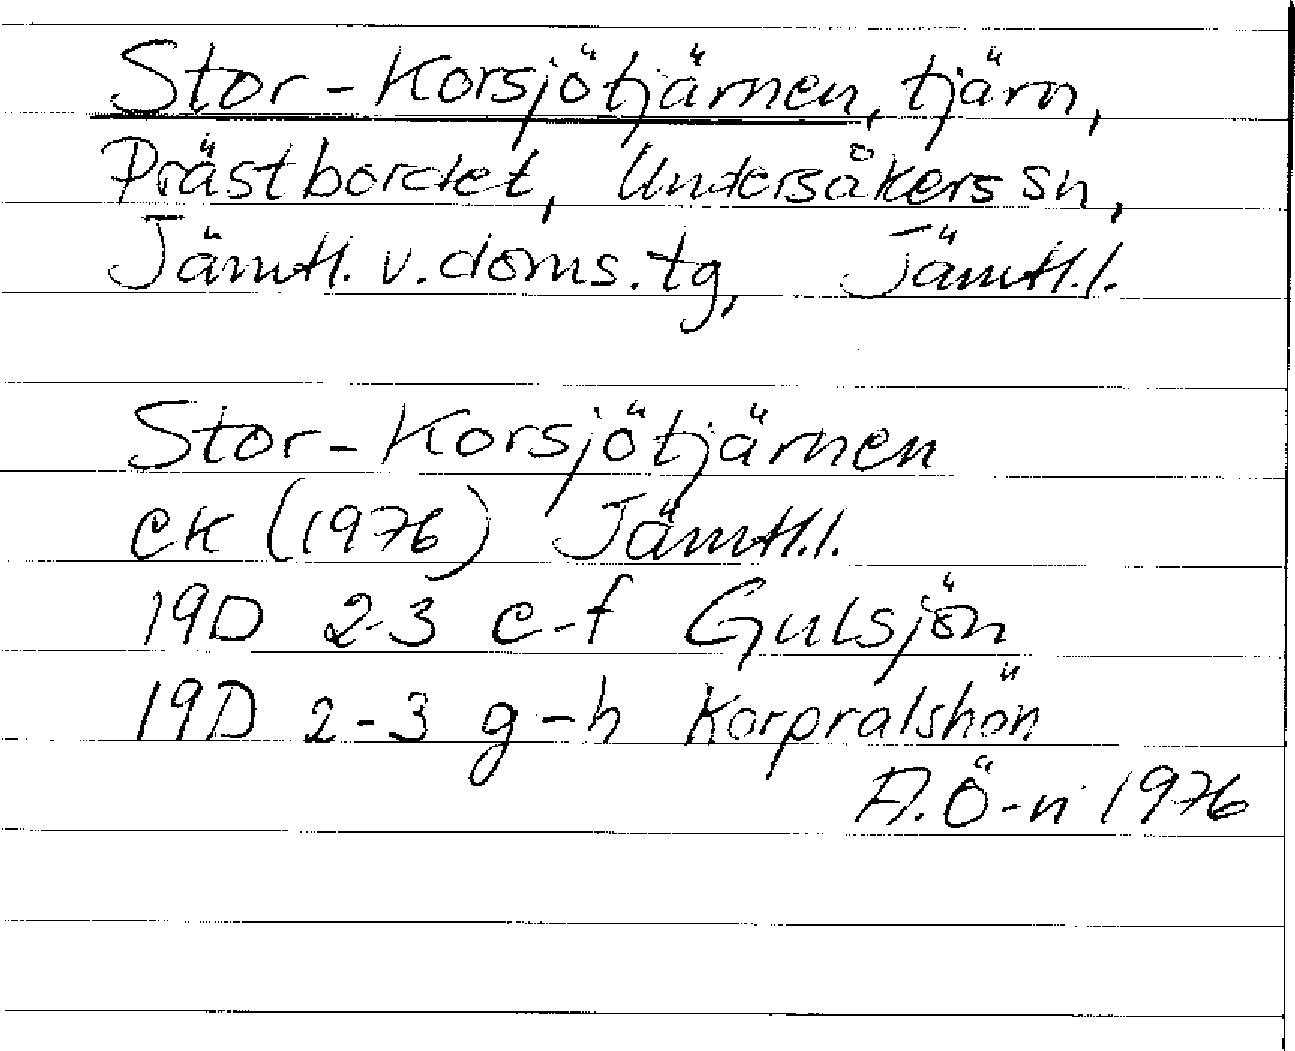 Stor-Korsjötjärnen, tjärn,
Prästbordet, Undersåkers sn,
Jämtl. v. doms. tg, Jämtl. l.
Stor-Korsjötjärnen
EK (1976) Jämtl. l.
19D 2-3 e-f Gulsjön
19D 2-3 g-h Korpralshön
A. Ö-n 1976